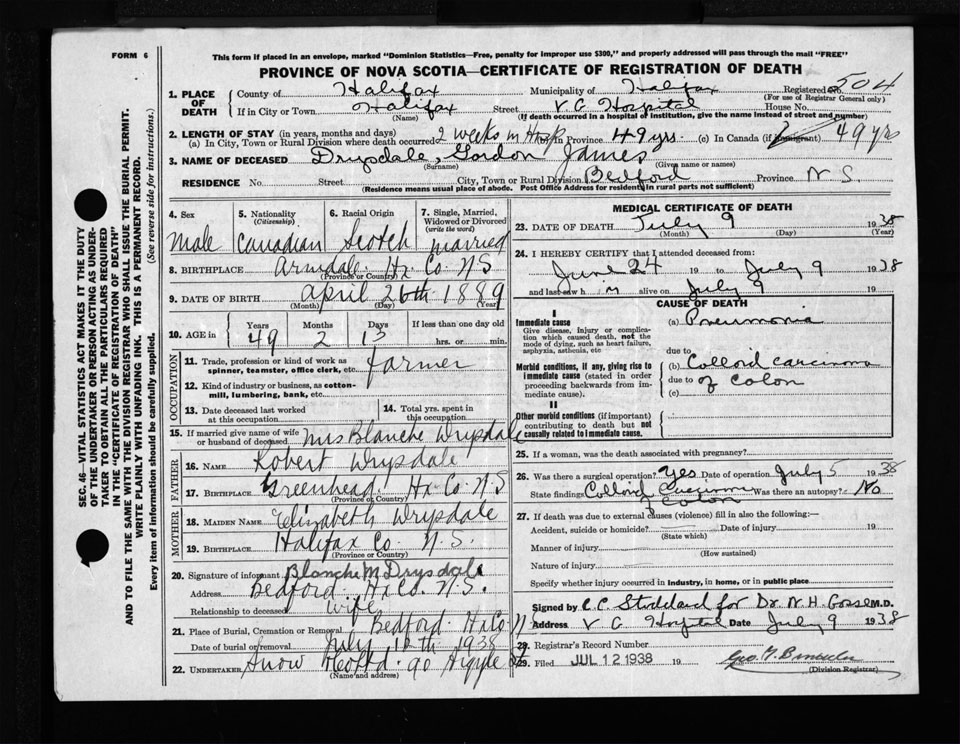 FORM 6
This form if placed in an envelope, marked "Dominion Statistics—Free, penalty for improper use $300," and properly addressed will pass through the mail "FREE"
PROVINCE OF NOVA SCOTIA—CERTIFICATE OF REGISTRATION OF DEATH
1. PLACE OF DEATH County of Halifax Municipality of Halifax Registered No. 504
(For use of Registrar General only)
If in City or Town Halifax Street V G Hospital House No.
(Name) (If death occurred in a hospital of institution, give the name instead of street and number)
2. LENGTH OF STAY (in years, months and days)
(a) In City, Town or Rural Division where death occurred 2 weeks in Hosp (b) In Province 49 yrs. (c) In Canada (if immigrant) 49 yrs
3. NAME OF DECEASED Drysdale, Gordon James
(Surname) (Given name or names)
RESIDENCE No. Street City, Town or Rural Division Bedford Province N S.
(Residence means usual place of abode. Post Office Address for residents in rural parts not sufficient)
4. Sex 5. Nationality (Citizenship) 6. Racial Origin 7. Single, Married, Widowed or Divorced (write the word)
Male Canadian Scotch Married
8. BIRTHPLACE Armdale. Hx. Co. N S
(Province or Country)
9. DATE OF BIRTH April 26th 1889
(Month) (Day) (Year)
10. AGE in Years Months Days If less than one day old
49 2 13 hrs. or min.
OCCUPATION
11. Trade, profession or kind of work as spinner, teamster, office clerk, etc. farmer
12. Kind of industry or business, as cotton-mill, lumbering, bank, etc.
13. Date deceased last worked at this occupation
14. Total yrs. spent in this occupation
15. If married give name of wife or husband of deceased Mrs Blanche Drysdale
FATHER
16. NAME Robert Drysdale
17. BIRTHPLACE Greenhead. Hx Co. N S
(Province or Country)
MOTHER
18. MAIDEN NAME Elizabeth Drysdale
19. BIRTHPLACE Halifax Co. N. S.
(Province or Country)
20. Signature of informant Blanche M Drysdale
Address Bedford Hx Co. N. S.
Relationship to deceased wife
21. Place of Burial, Cremation or Removal Bedford. Hx Co. N
Date of burial or removal July 1938
22. UNDERTAKER Snow 90 Argyle St
(Name and address)
MEDICAL CERTIFICATE OF DEATH
23. DATE OF DEATH July 9 1938
(Month) (Day) (Year)
24. I HEREBY CERTIFY that I attended deceased from:
June 24 19 to July 9 1938
and last saw him alive on July 9 19
CAUSE OF DEATH
I
Immediate cause
Give disease, injury or complication which caused death, not the mode of dying, such as heart failure, asphyxia, asthenia, etc
(a) Pneumonia
due to
Morbid conditions, if any, giving rise to immediate cause (stated in order proceeding backwards from immediate).
(b) Colloid carcinoma
due to of colon
(c)
II
Other morbid conditions (if important) contributing to death but not causally related to immediate cause.
25. If a woman, was the death associated with pregnancy?
26. Was there a surgical operation? Yes Date of operation July 5 1938
State findings Colloid Carcinoma of Colon Was there an autopsy? No
27. If death was due to external causes (violence) fill in also the following:—
Accident, suicide or homicide? Date of injury 19
(State which)
Manner of injury
(How sustained)
Nature of injury
Specify whether injury occurred in industry, in home, or in public place
Signed by C. C. Stoddard for Dr. N. H. Gosse M.D.
Address V G Hospital Date July 9 1938
28. Registrar's Record Number
29. Filed JUL 12 1938 19
(Division Registrar)
SEC. 46—VITAL STATISTICS ACT MAKES IT THE DUTY
OF THE UNDERTAKER OR PERSON ACTING AS UNDER-
TAKER TO OBTAIN ALL THE PARTICULARS REQUIRED
IN THE "CERTIFICATE OF REGISTRATION OF DEATH"
AND TO FILE THE SAME WITH THE DIVISION REGISTRAR WHO SHALL ISSUE THE BURIAL PERMIT.
WRITE PLAINLY WITH UNFADING INK. THIS IS A PERMANENT RECORD.
Every item of information should be carefully supplied. (See reverse side for instructions.)